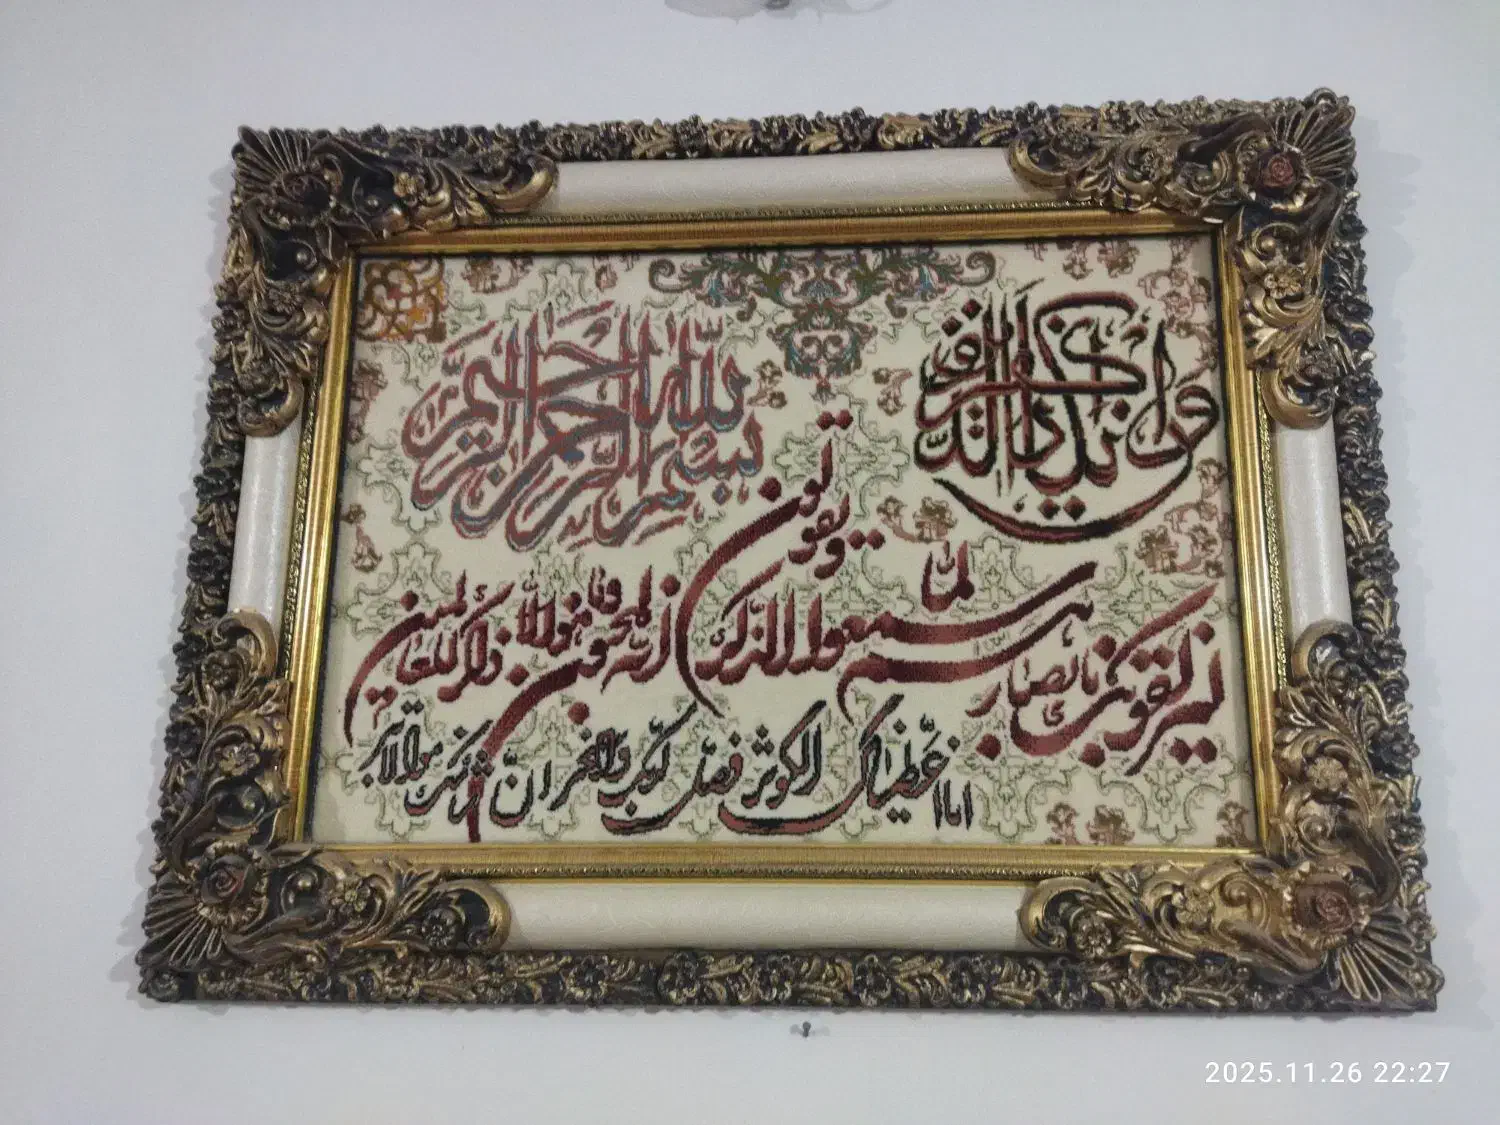 بسم الله الرحمن الرحيم
وان يكاد الذين كفروا
ليزلقونك بابصارهم لما سمعوا الذكر ويقولون
انه لمجنون وما هو الا ذكر للعالمين
انا اعطيناك الكوثر فصل لربك وانحر ان شانئك هو الابتر
2025.11.26 22:27